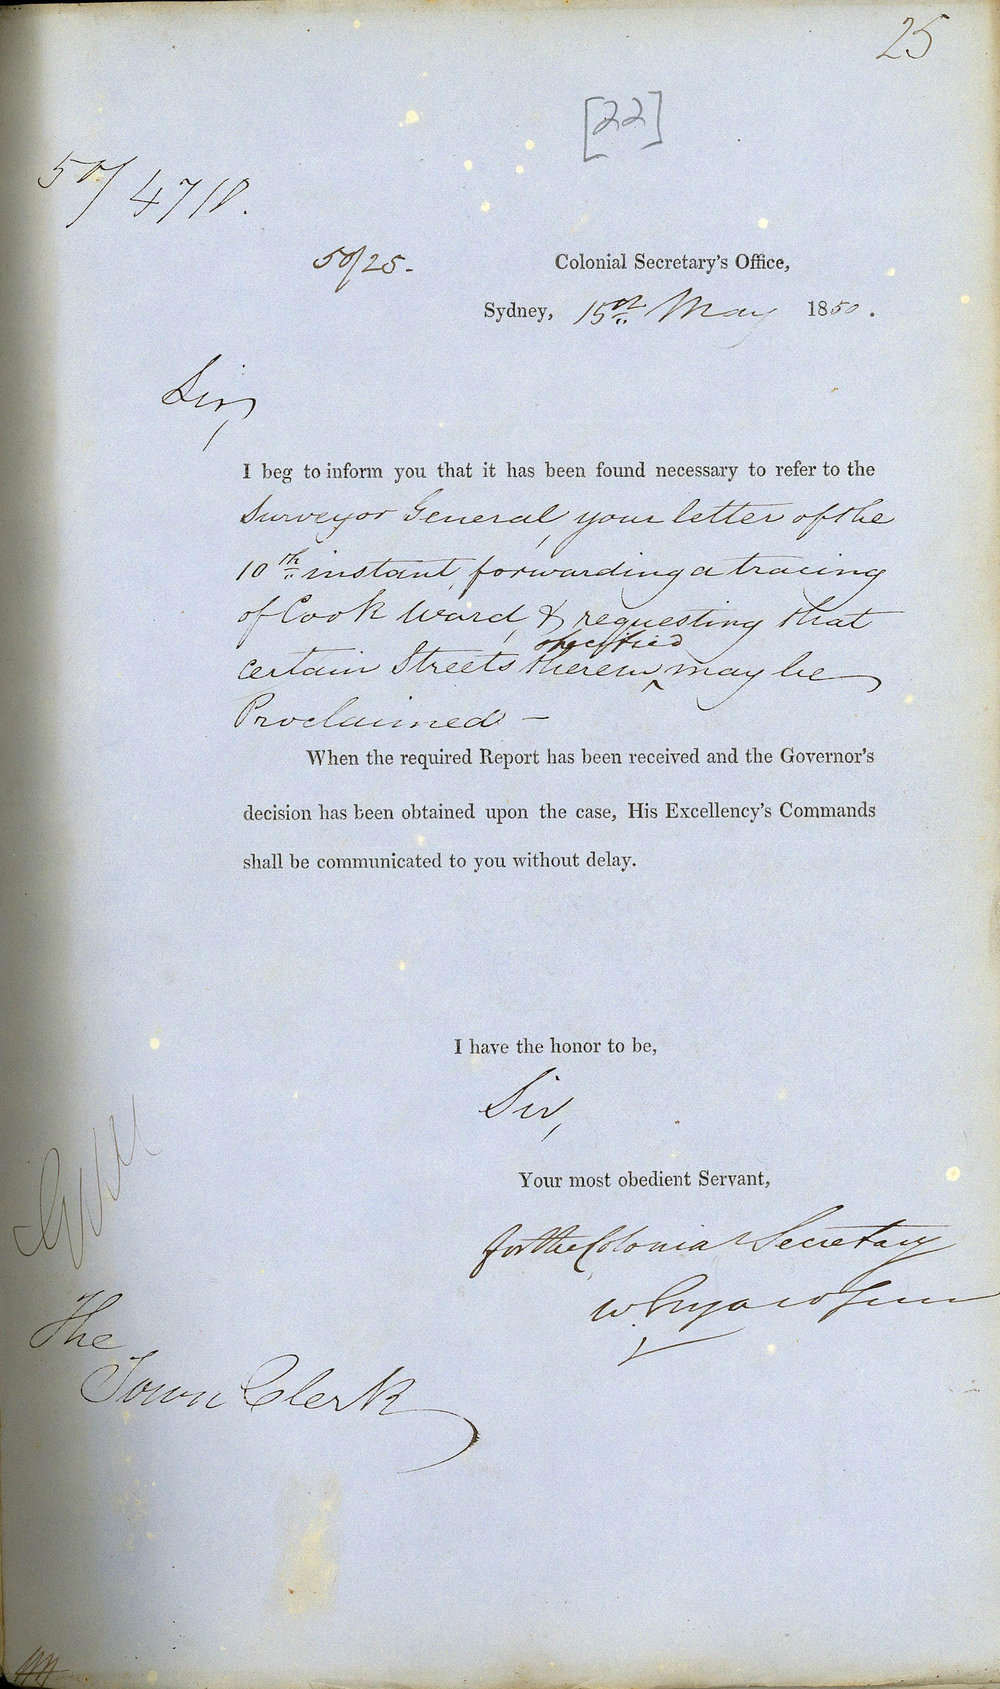 25
[22]
50/4718.
50/25.
Colonial Secretary's Office,
Sydney, 15th May 1850.
Sir,
I beg to inform you that it has been found necessary to refer to the
Surveyor General, your letter of the
10th instant, forwarding a tracing
of Cook Ward, & requesting that
specified
certain Streets therein ^ may be
Proclaimed –
When the required Report has been received and the Governor's
decision has been obtained upon the case, His Excellency's Commands
shall be communicated to you without delay.
I have the honor to be,
Sir,
Your most obedient Servant,
for the Colonial Secretary
W.
The
Town Clerk